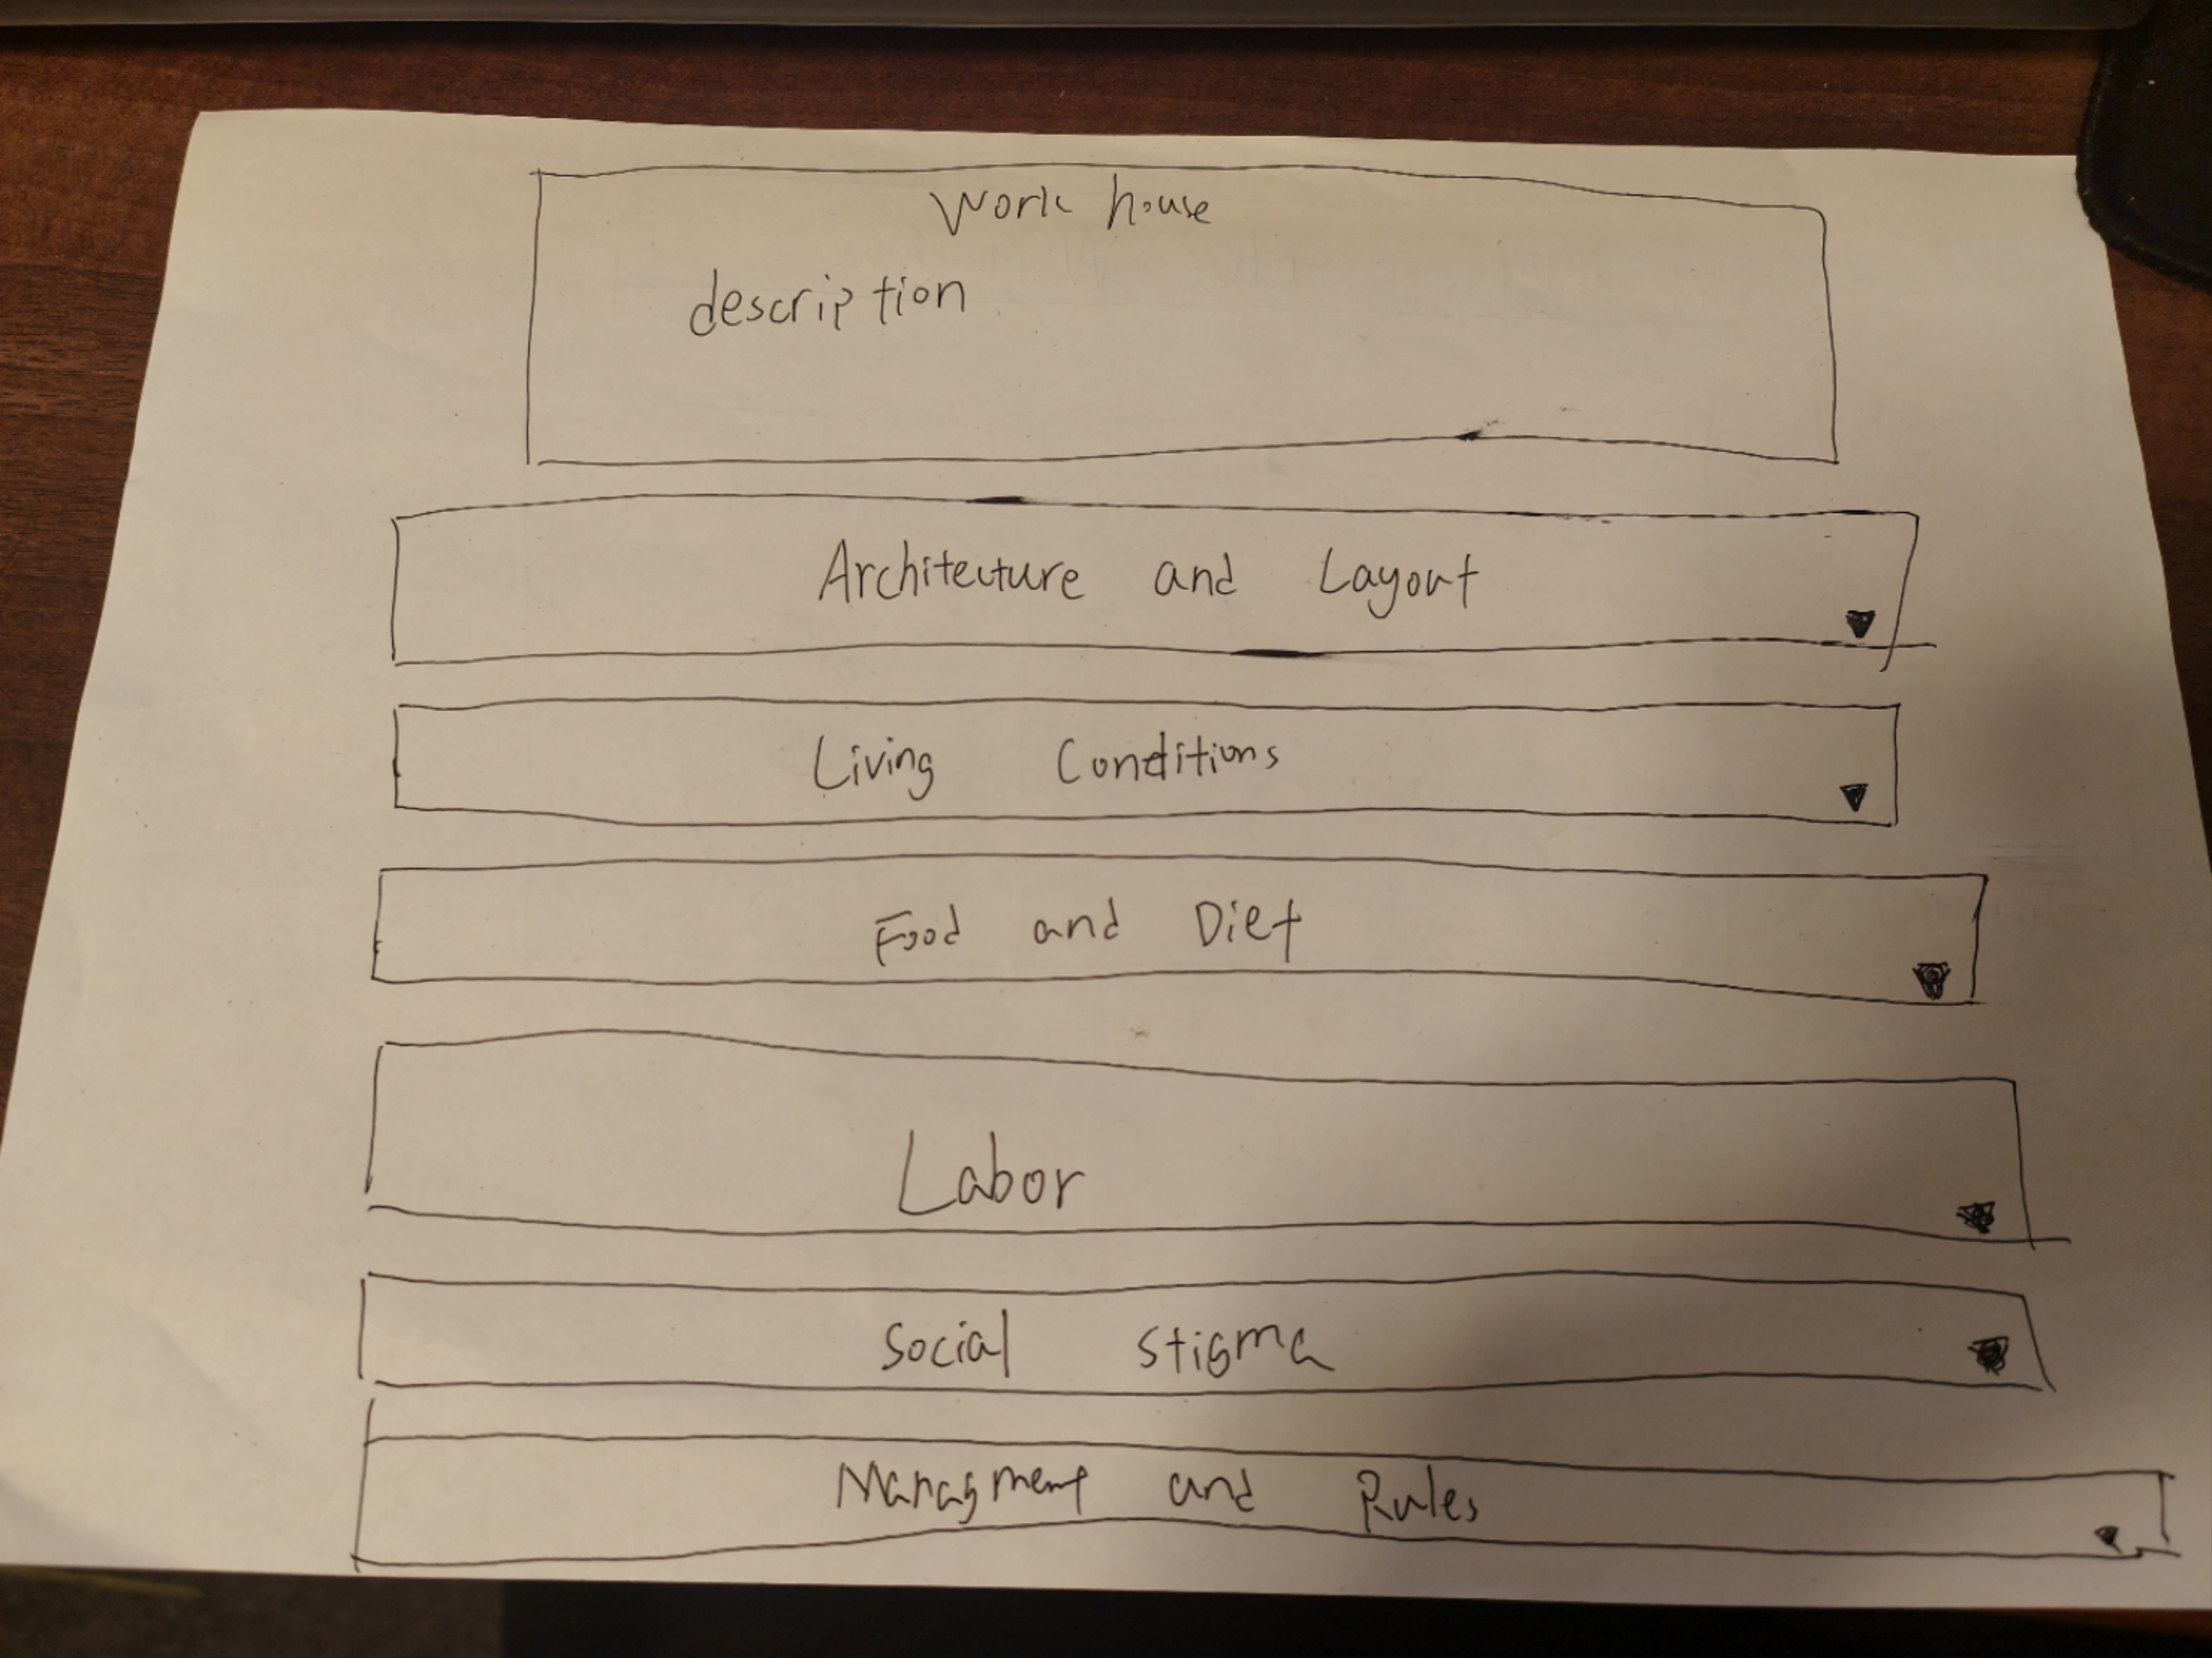 Work house
description
Architecture and Layout
Living Conditions
Food and Diet
Labor
Social stigma
Managment and Rules